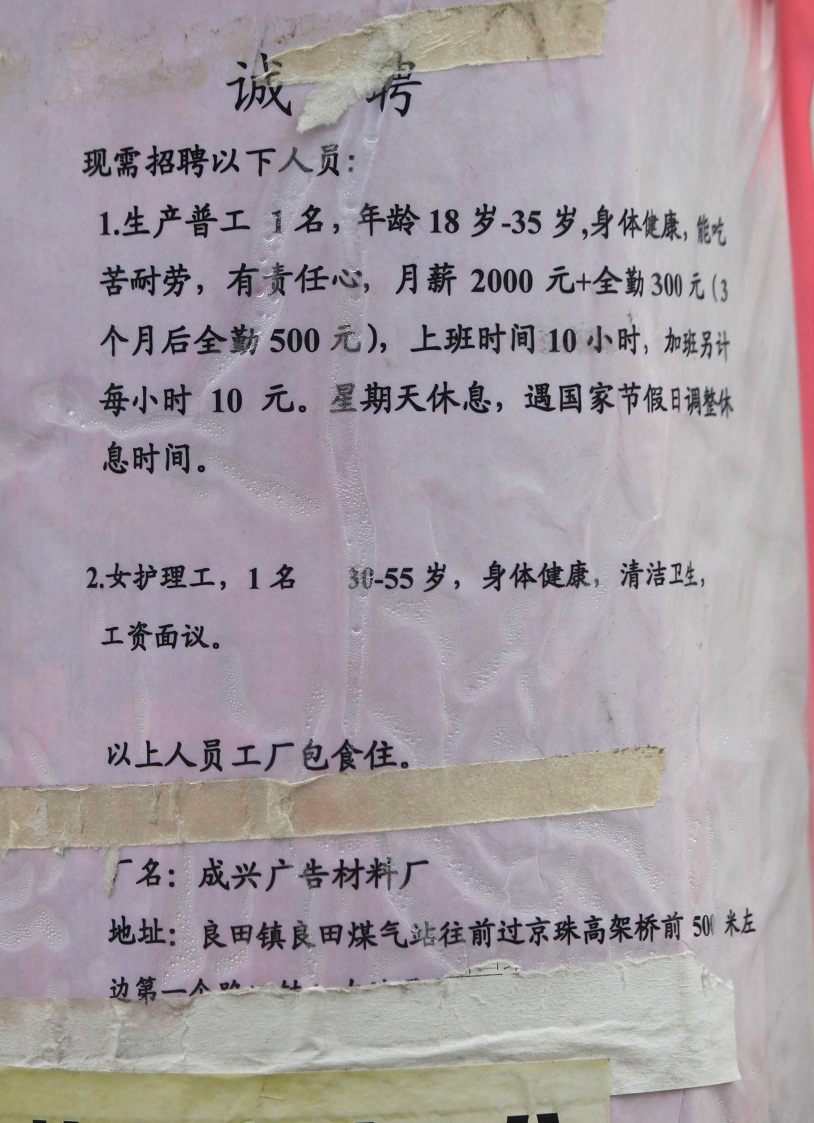 诚 聘
现需招聘以下人员：
1.生产普工 1名，年龄 18 岁-35 岁,身体健康，能吃
苦耐劳，有责任心，月薪 2000 元+全勤300元（3
个月后全勤 500 元），上班时间 10 小时，加班另计
每小时 10 元。星期天休息，遇国家节假日调整休
息时间。
2.女护理工，1 名 30-55 岁，身体健康，清洁卫生，
工资面议。
以上人员工厂包食住。
厂名：成兴广告材料厂
地址：良田镇良田煤气站往前过京珠高架桥前 500 米左
边第一个路